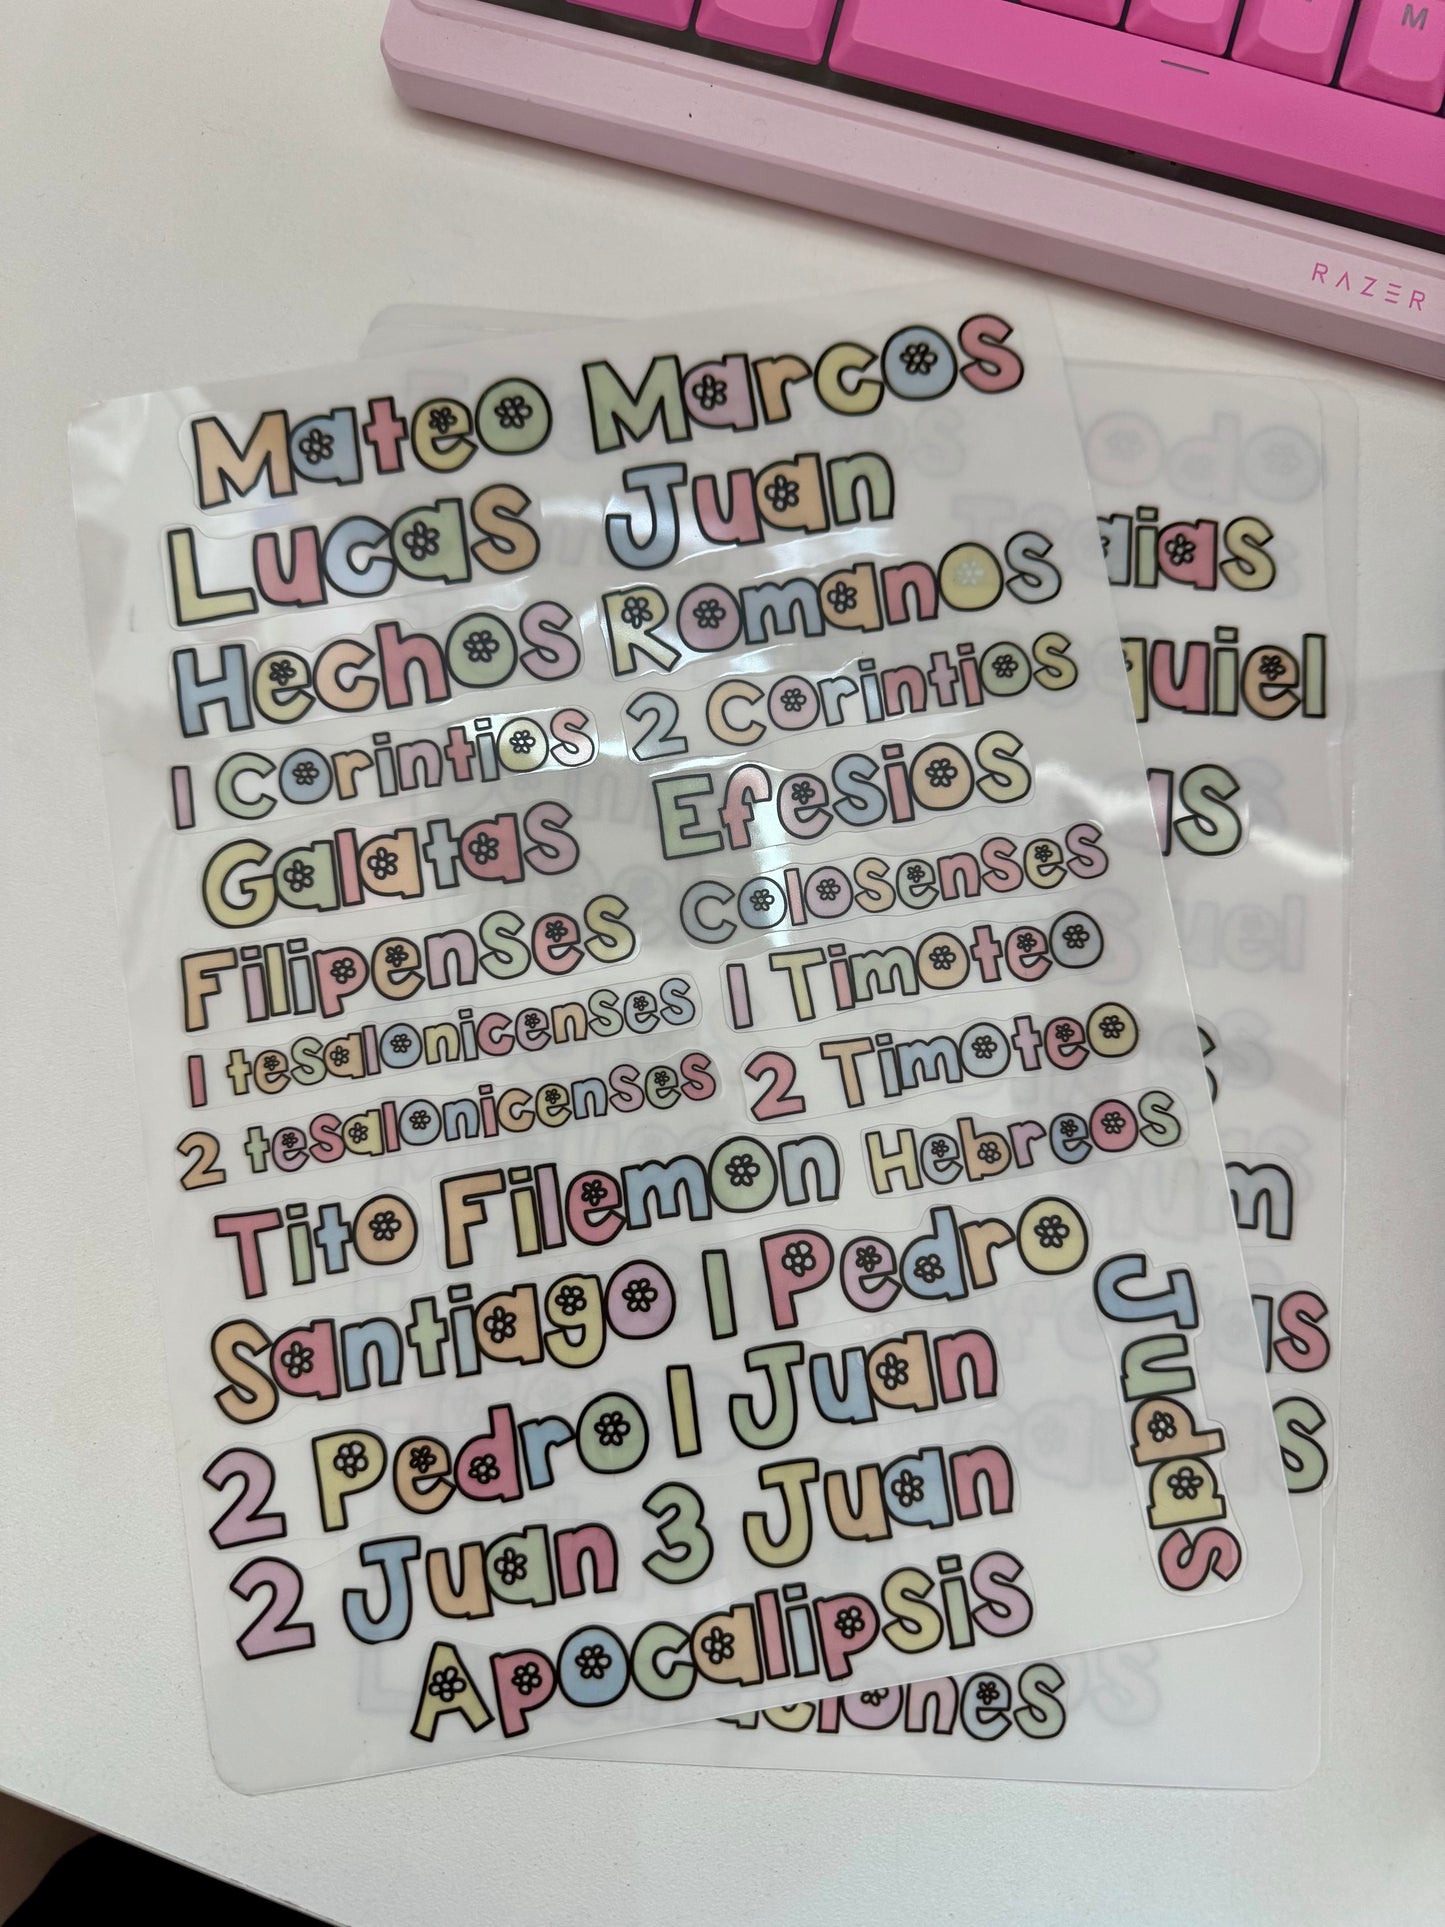 M
RAZER
Mateo Marcos
Lucas Juan
Hechos Romanos
1 Corintios 2 Corintios
Galatas Efesios
Filipenses Colosenses
1 tesalonicenses 1 Timoteo
2 tesalonicenses 2 Timoteo
Tito Filemon Hebreos
Santiago 1 Pedro
2 Pedro 1 Juan
2 Juan 3 Juan
Judas
Apocalipsis